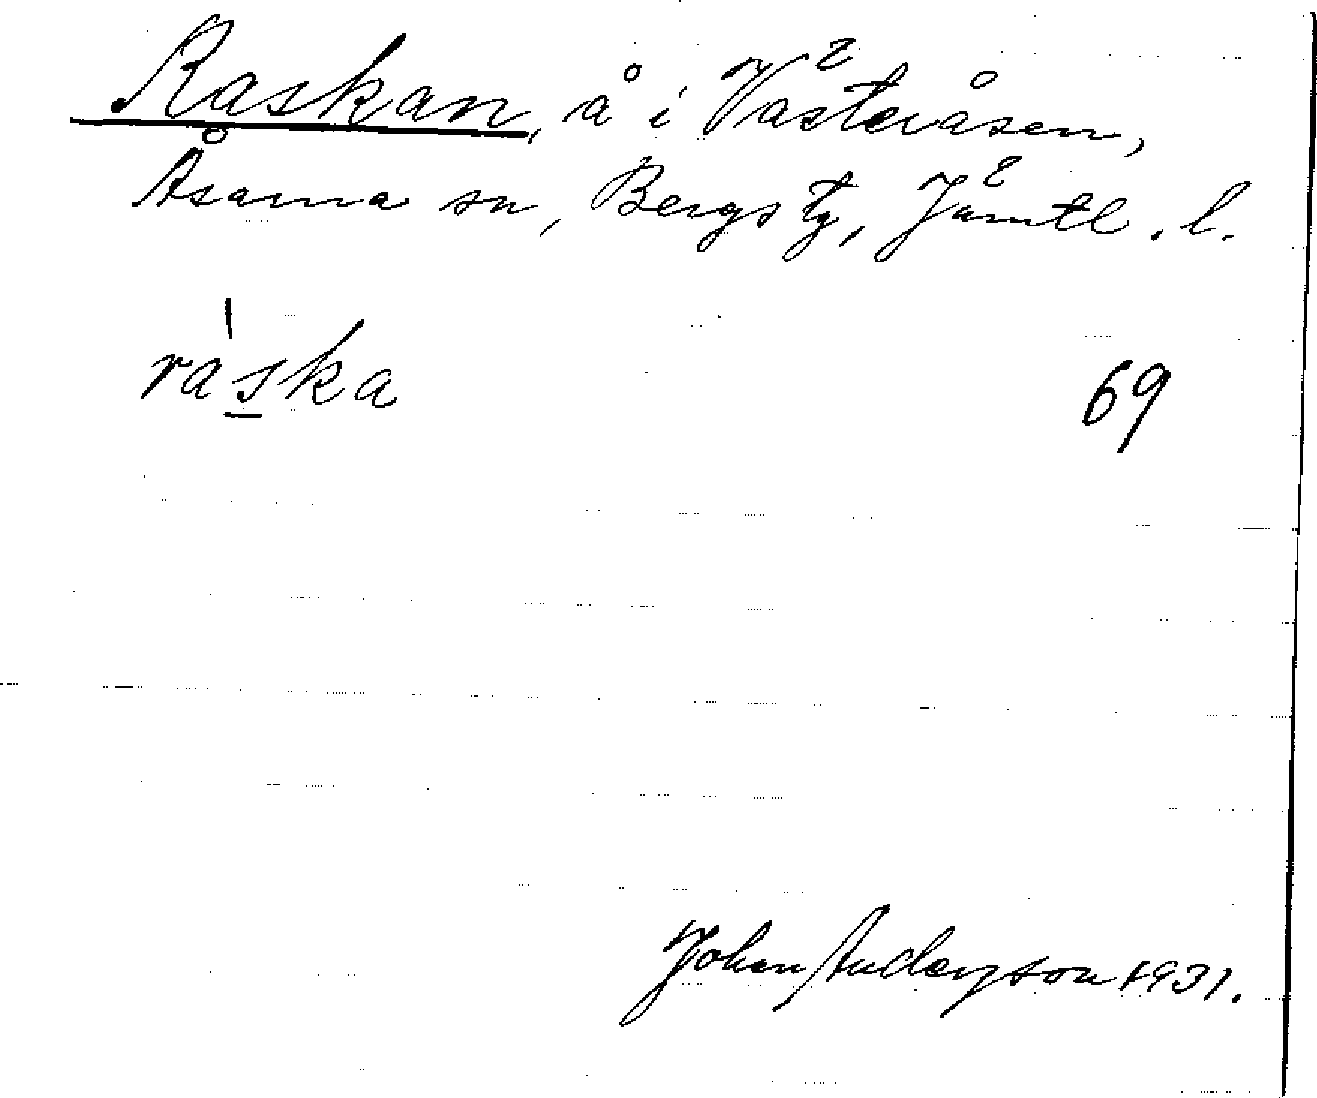 Raskan, å i Västeråsen,
Åsarna sn, Bergs tg, Jämtl. l.
ra̍s̲ka
69
Johan Anderson 1931.